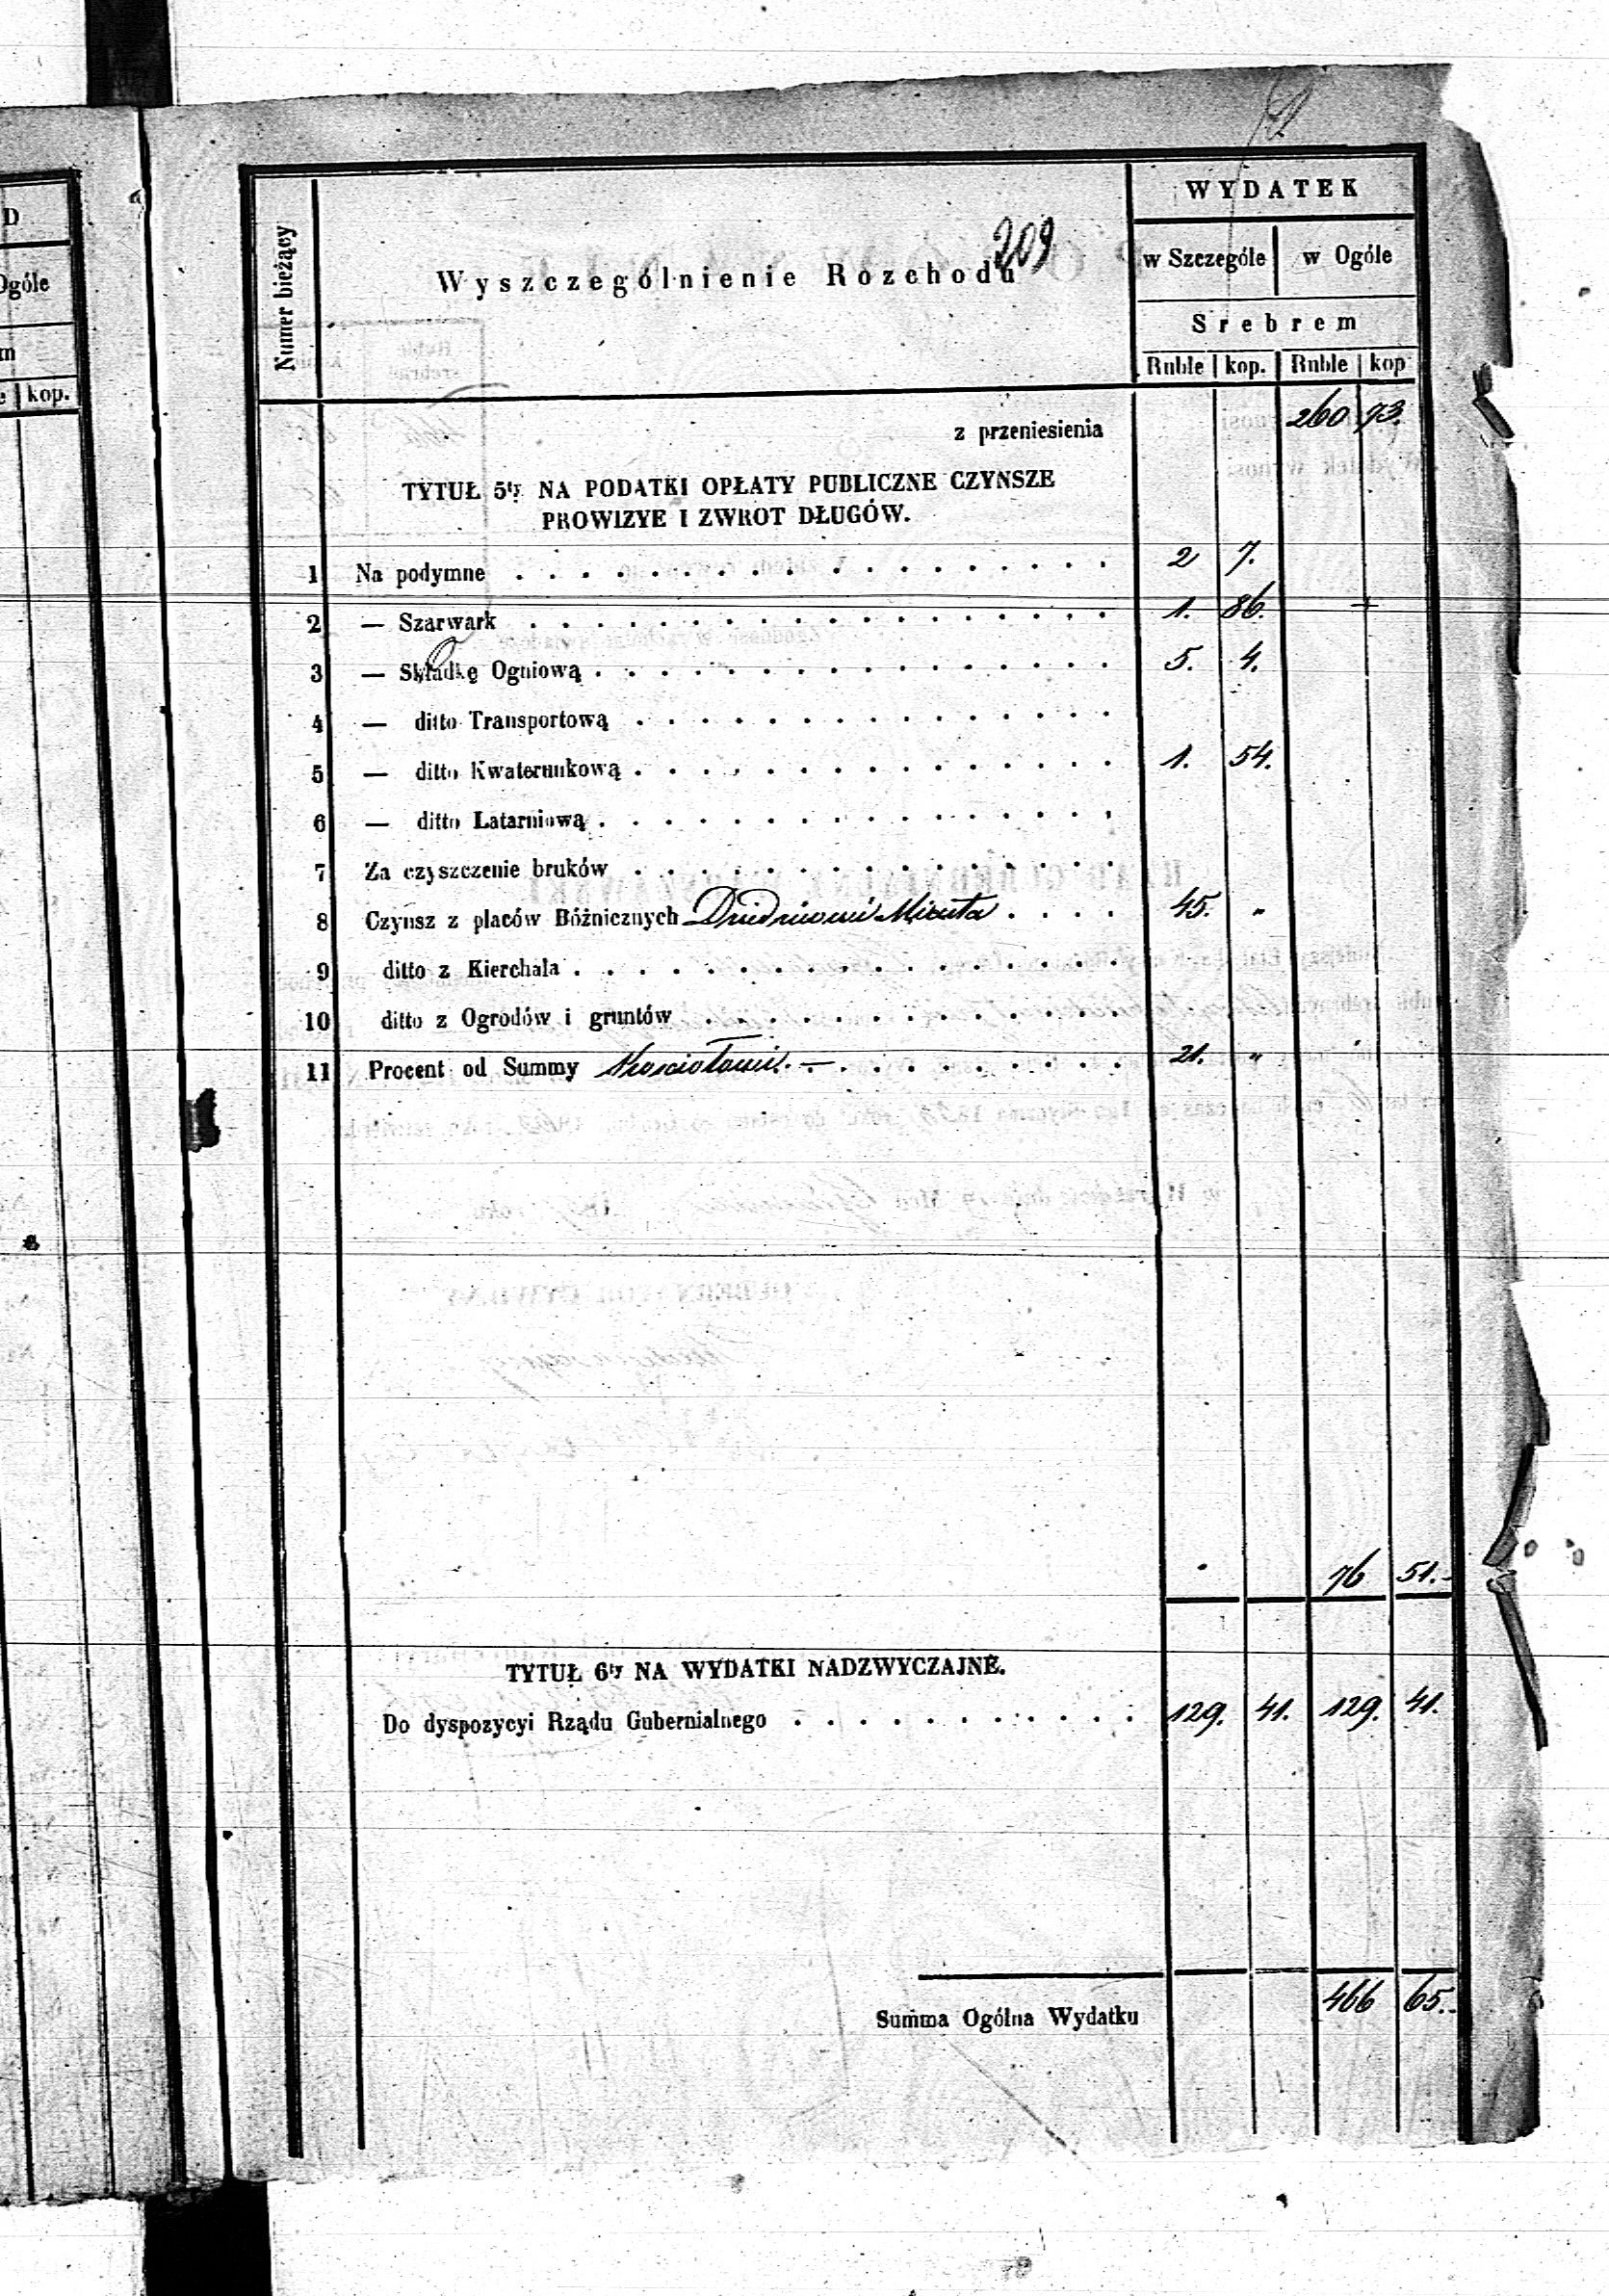 D
Ogóle
m
e kop.
209
Numer bieżący
Wyszczególnienie Rozchodu
WYDATEK
w Szczególe w Ogóle
Srebrem
Ruble kop. Ruble kop
z przeniesienia 260 73.
TYTUŁ 5ty NA PODATKI OPŁATY PUBLICZNE CZYNSZE
PROWIZYE I ZWROT DŁUGÓW.
1 Na podymne . . . . . . . . . . . . . . . . . . 2 7.
2 — Szarwark . . . . . . . . . . . . . . . . . . 1. 86.
3 — Składkę Ogniową . . . . . . . . . . . . . . . . 5. 4.
4 — ditto Transportową . . . . . . . . . . . . . . .
5 — ditto Kwaterunkową . . . . . . . . . . . . . . . 1. 54.
6 — ditto Latarniową . . . . . . . . . . . . . . . .
7 Za czyszczenie bruków . . . . . . . . . . . . . . .
8 Czynsz z placów Bóżnicznych Dziedzicowi Miasta . . . . 45. "
9 ditto z Kierchala . . . . . . . . . . . . . . . . .
10 ditto z Ogrodów i gruntów . . . . . . . . . . . . .
11 Procent od Summy Kościołowi. — . . . . . . . . . . 21. "
76 51.-
TYTUŁ 6ty NA WYDATKI NADZWYCZAJNE.
Do dyspozycyi Rządu Gubernialnego . . . . . . . . . . . 129. 41. 129. 41.
Summa Ogólna Wydatku 466 65.